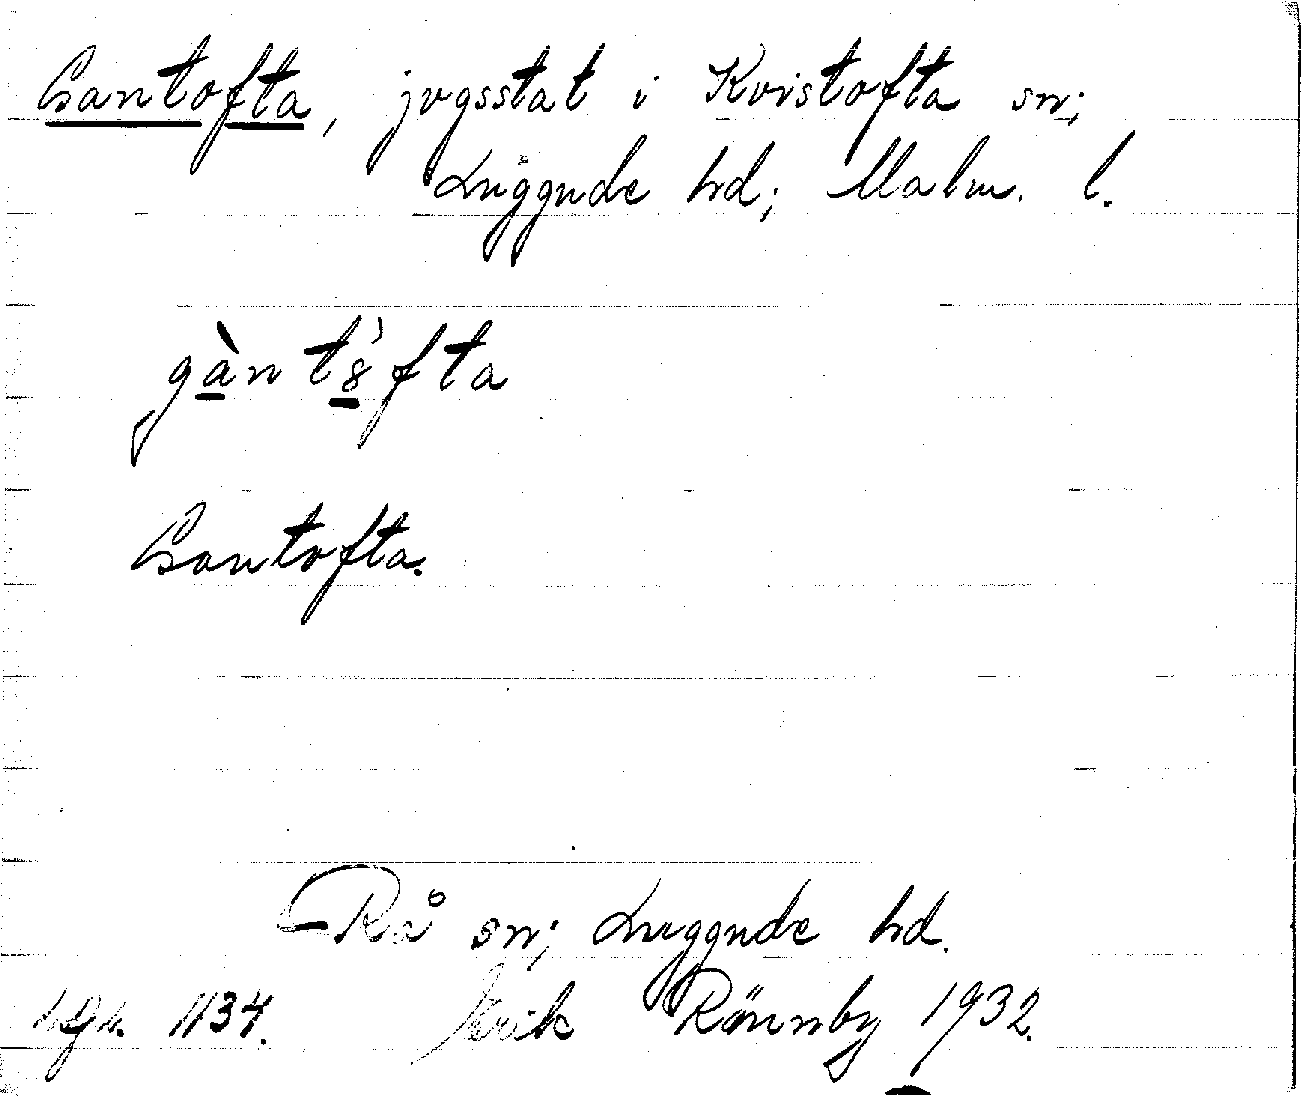 Gantofta, jvgsstat i Kvistofta sn;
Luggude hd; Malm. l.
gàntš̀fta
Gantofta.
Rå sn; Luggude hd.
1134. Erik Rönnby 1932.